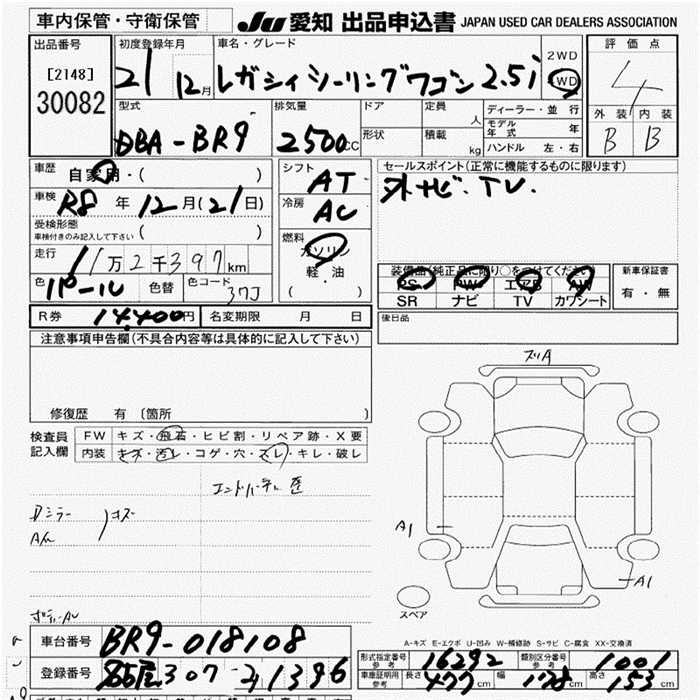 車内保管・守衛保管
JU 愛知 出品申込書 JAPAN USED CAR DEALERS ASSOCIATION
出品番号
[2148]
30082
初度登録年月
21 12月
車名・グレード
レガシィツーリングワゴン 2.5i
2WD
4WD
評価点
4
外装 内装
B B
型式
DBA-BR9
排気量
2500cc
ドア
形状
定員
人
積載
kg
ディーラー・並行
モデル年式 年
ハンドル 左・右
車歴
自家用・( )
車検
R8年12月(21日)
受検形態
車検付きのみ記入して下さい ( )
走行
11万2千397km
色
パール
色替
色コード
37J
シフト
AT
冷房
AC
燃料
ガソリン
軽・油
( )
セールスポイント(正常に機能するものに限ります)
社外ナビ・TV.
装備品(純正品に限り○をつけてください)
PS PW エアB AW
SR ナビ TV カワシート
新車保証書
有・無
後日品
R券 14,400円
名変期限 月 日
注意事項申告欄(不具合内容等は具体的に記入して下さい)
修復歴 有〔箇所 〕
検査員記入欄
FW キズ・飛石・ヒビ割・リペア跡・X要
内装 キズ・汚レ・コゲ・穴・スレ・キレ・破レ
Dミラー
キズ
ズリA
A1
A1
スペア
A-キズ E-エクボ U-凹み W-補修跡 S-サビ C-腐食 XX-交換済
車台番号 BR9-018108
登録番号 307 21396
形式指定番号 参考 16292
類別区分番号 参考 1001
車庫証明用 参考 長さ 477cm 幅 178cm 高さ 153cm